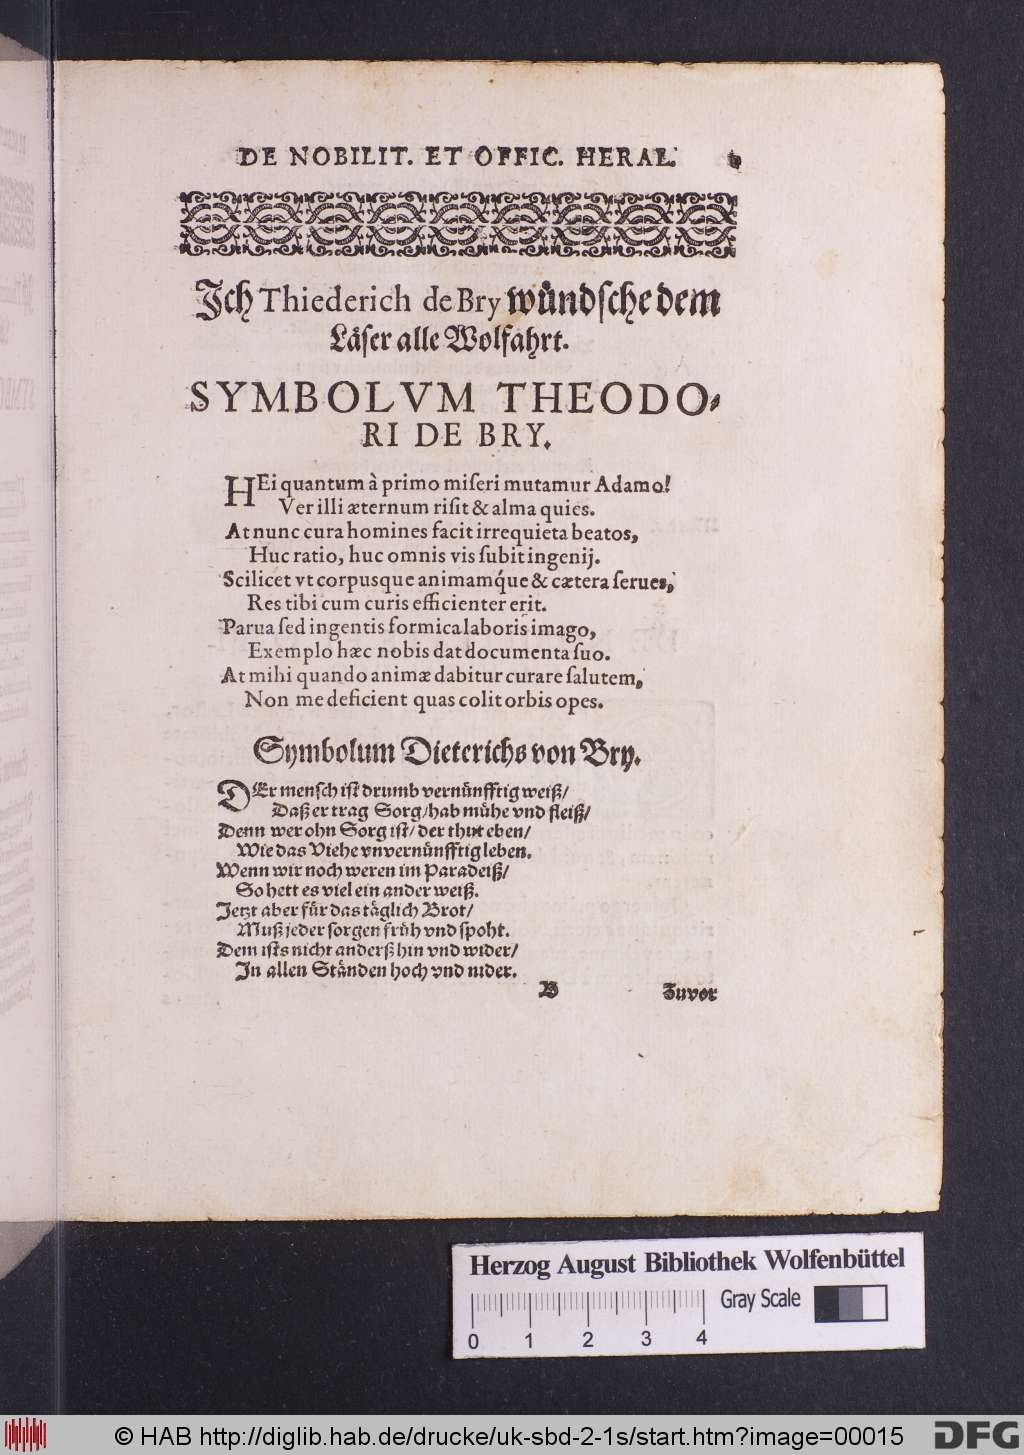 DE NOBILIT. ET OFFIC. HERAL.
Ich Thiederich de Bry wůndſche dem
Läſer alle Wolfahrt.
SYMBOLVM THEODO-
RI DE BRY.
HEi quantum à primo miſeri mutamur Adamo!
Ver illi æternum riſit & alma quies.
At nunc cura homines facit irrequieta beatos,
Huc ratio, huc omnis vis ſubit ingenij.
Scilicet vt corpusque animamq́ue & cætera ſerues,
Res tibi cum curis efficienter erit.
Parua ſed ingentis formica laboris imago,
Exemplo hæc nobis dat documenta ſuo.
At mihi quando animæ dabitur curare ſalutem,
Non me deficient quas colit orbis opes.
Symbolum Dieterichs von Bry.
DEr menſch iſt drumb vernünfftig weiß/
Daß er trag Sorg/hab mühe vnd fleiß/
Denn wer ohn Sorg iſt/ der thut eben/
Wie das Viehe vnvernünfftig leben.
Wenn wir noch weren im Paradeiß/
So hett es viel ein ander weiß.
Jetzt aber für das täglich Brot/
Muß jeder ſorgen früh vnd ſpoht.
Dem iſts nicht anderß hin vnd wider/
In allen Ständen hoch vnd nider.
B Zuvor
Herzog August Bibliothek Wolfenbüttel
Gray Scale
0 1 2 3 4
© HAB http://diglib.hab.de/drucke/uk-sbd-2-1s/start.htm?image=00015
DFG